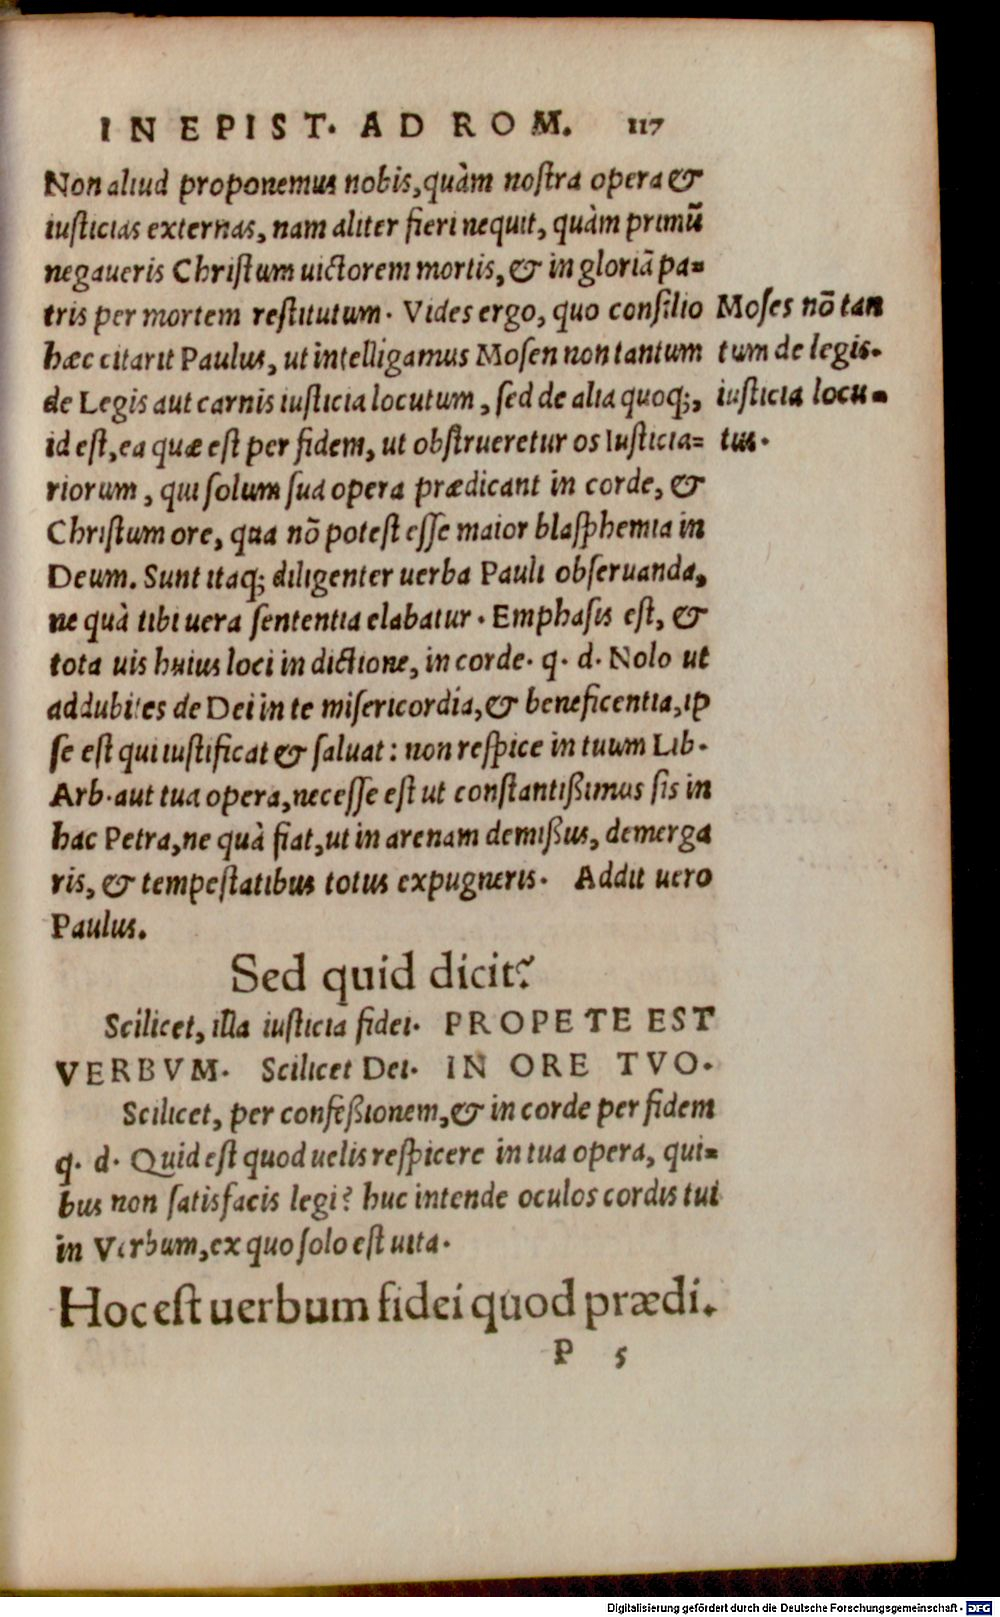 IN EPIST. AD ROM. 117
Non aliud proponemus nobis, quàm noſtra opera &
iuſticias externas, nam aliter fieri nequit, quàm primũ
negaueris Chriſtum uictorem mortis, & in gloriã pa=
tris per mortem reſtitutum. Vides ergo, quo conſilio
hæc citarit Paulus, ut intelligamus Moſen non tantum
de Legis aut carnis iuſticia locutum, ſed de alia quoq;,
id eſt, ea quæ eſt per fidem, ut obſtrueretur os Iuſticia=
riorum, qui ſolum ſua opera prædicant in corde, &
Chriſtum ore, qua nõ poteſt eſſe maior blaſphemia in
Deum. Sunt itaq; diligenter uerba Pauli obſeruanda,
ne quà tibi uera ſententia elabatur. Emphaſis eſt, &
tota uis huius loci in dictione, in corde. q. d. Nolo ut
addubites de Dei in te miſericordia, & beneficentia, ip
ſe eſt qui iuſtificat & ſaluat: non reſpice in tuum Lib.
Arb. aut tua opera, neceſſe eſt ut conſtantißimus ſis in
hac Petra, ne quà fiat, ut in arenam demißus, demerga
ris, & tempeſtatibus totus expugneris. Addit uero
Paulus.
Moſes nõ tan
tum de legis.
iuſticia locu=
tus.
Sed quid dicit?
Scilicet, illa iuſticia fidei. PROPE TE EST
VERBVM. Scilicet Dei. IN ORE TVO.
Scilicet, per confeßionem, & in corde per fidem
q. d. Quid eſt quod uelis reſpicere in tua opera, qui=
bus non ſatisfacis legi? huc intende oculos cordis tui
in Verbum, ex quo ſolo eſt uita.
Hoc eſt uerbum fidei quod prædi.
P 5
Digitalisierung gefördert durch die Deutsche Forschungsgemeinschaft - DFG